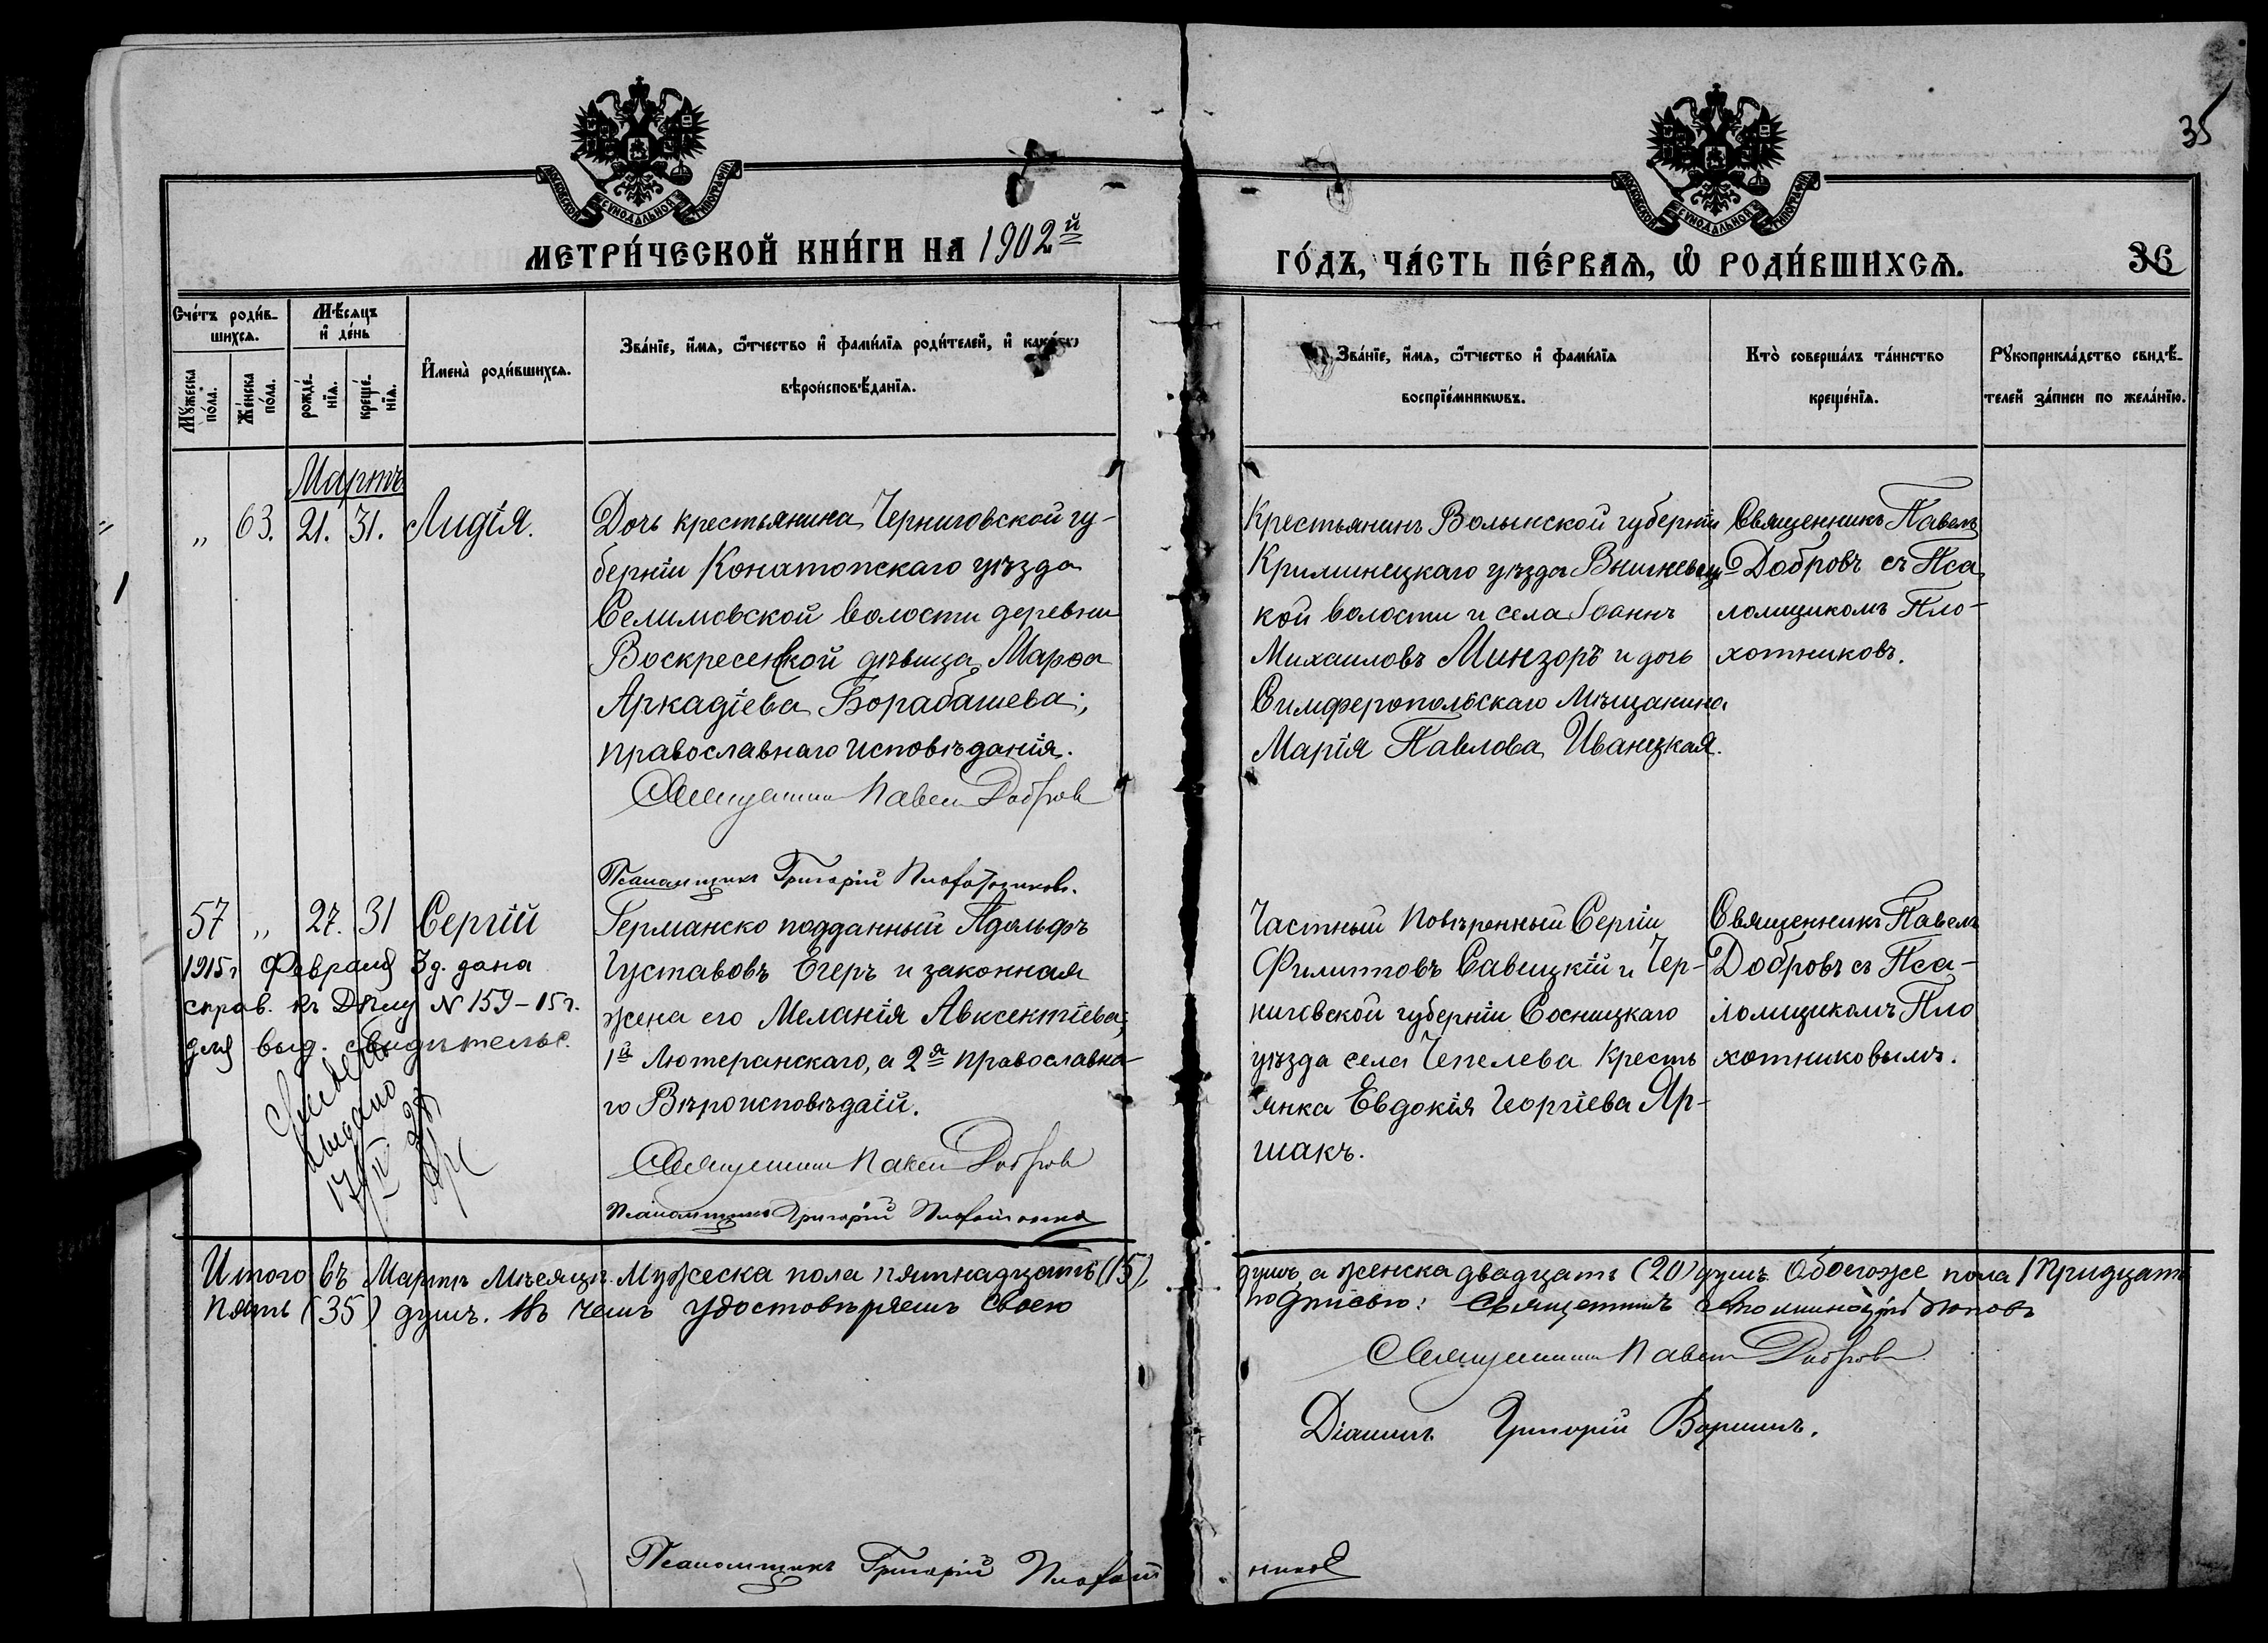 35
МОСКОВСКОЙ СѴНОДАЛЬНОЙ ТИПОГРАФІИ
МОСКОВСКОЙ СѴНОДАЛЬНОЙ ТИПОГРАФІИ
МЕТРИ́ЧЕСКОЙ КНИ́ГИ НА 1902й
ГО́ДЪ, ЧА́СТЬ ПЕ́РВАѦ, Ѡ РОДИ́ВШИХСѦ.
36
Сче́тъ роди́в-
шихсѧ.
Мꙋжеска по́ла.
Же́нска по́ла.
Мѣ́сяцъ
и҆ де́нь
рожде́-
нїѧ.
креще́-
нїѧ.
И҆мена̀ роди́вшихсѧ.
Зва́нїе, и҆́мѧ, ѻ҆́тчество и҆ фами́лїѧ роди́телей, и҆ како́гѡ
вѣроисповѣ́данїѧ.
Зва́нїе, и҆́мѧ, ѻ҆́тчество и҆ фами́лїѧ
воспрїе́мникѡвъ.
Кто̀ соверша́лъ та́инство
креще́нїѧ.
Рꙋкоприкла́дство свидѣ́-
телей за́писи по жела́нїю.
Мартъ
„ 63. 21. 31. Лидія.
Дочь крестьянина Черниговской гу-
берніи Конатопскаго уѣзда
Селимовской волости деревни
Воскресенской дѣвица Марѳа
Аркадіева Борабашева;
православнаго исповѣданія.
Священникъ Павелъ Добровъ
Псаломщикъ Григорій Плохотниковъ.
Крестьянинъ Волынской губерніи
Криминецкаго уѣзда Вишневец-
кой волости и села Іоаннъ
Михаиловъ Минзоръ и дочь
Симферопольскаго Мѣщанина
Марія Павлова Иванецкая.
Священникъ Павелъ
Добровъ съ Пса
ломщикомъ Пло-
хотниковъ.
57 „ 27. 31 Сергій
1915г Февраля 3 д. дана
справ. къ Дѣлу N 159-15г.
для выд. свидѣтельс.
17/II 28
Германско подданный Адольфъ
Густавовъ Егеръ и законная
жена его Меланія Авксентіева;
1й Лютеранскаго, а 2я православна-
го Вѣроисповѣдаій.
Священникъ Павелъ Добровъ
Псаломщикъ Григорій Плохотникъ
Частный Повѣренный Сергій
Филипповъ Савицкій и Чер-
ниговской губерніи Сосницкаго
уѣзда села Чепелева Кресть
янка Евдокія Георгіева Яр-
шакъ.
Священникъ Павелъ
Добровъ съ Пса-
ломщикомъ Пло
хотниковымъ.
Итого въ Мартѣ Мѣсяцѣ. Мужеска пола пятнадцать (15)
душъ, а женска двадцать (20) душъ Обоегоже пола Тридцать
Пять (35) душъ. Въ чемъ удостовѣряемъ своею
подписью: Священникъ Поповъ
Священникъ Павелъ Добровъ
Діаконъ Григорій
Псаломщикъ Григорій Плохот
никовъ